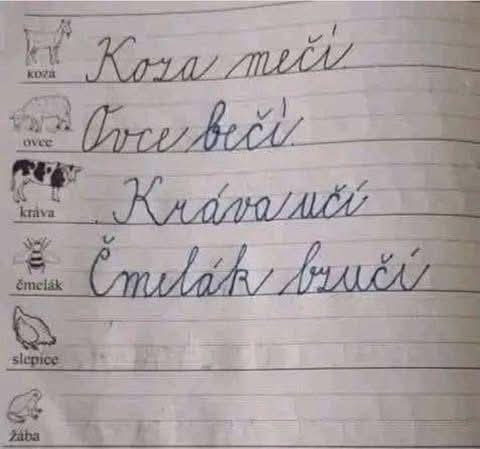 koza Koza mečí
ovce Ovce bečí.
kráva Kráva učí
čmelák Čmelák bzučí
slepice
žába